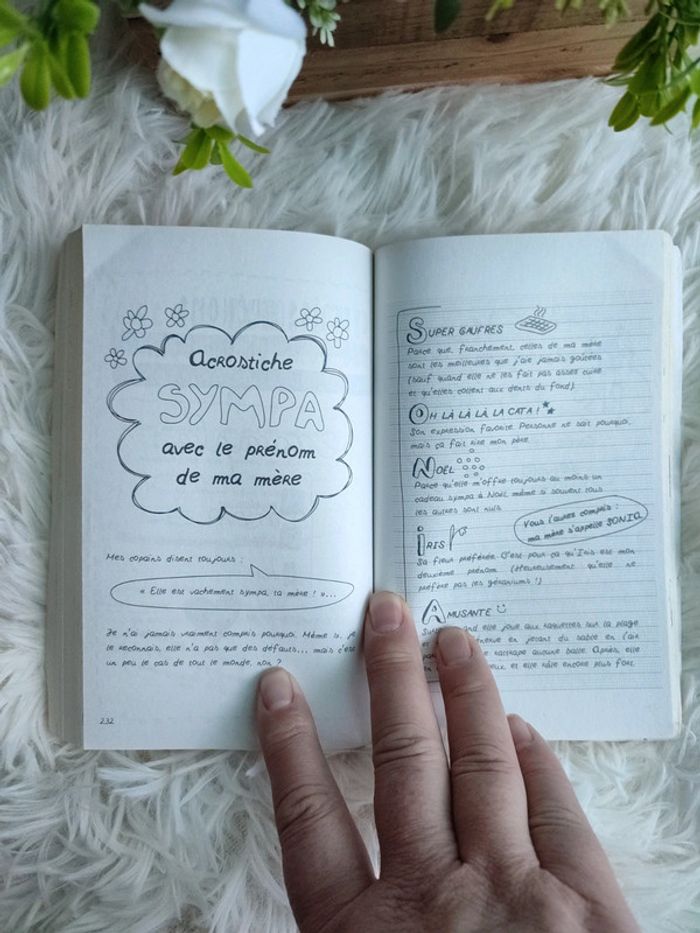 Acrostiche
SYMPA
avec le prénom
de ma mère
Mes copains disent toujours :
« Elle est vachement sympa, ta mère ! »...
Je n'ai jamais vraiment compris pourquoi. Même si, je
le reconnais, elle n'a pas que des défauts... mais c'est
un peu le cas de tout le monde, non ?
232
SUPER GAUFRES
Parce que, franchement, celles de ma mère
sont les meilleures que j'aie jamais goûtées
(sauf quand elle ne les fait pas assez cuire
et qu'elles collent aux dents du fond).
OH LÀ LÀ LÀ LA CATA !
Son expression favorite. Personne ne sait pourquoi,
mais ça fait rire mon père.
NOËL
Parce qu'elle m'offre toujours au moins un
cadeau sympa à Noël, même si souvent tous
les autres sont nuls.
Vous l'aurez compris :
ma mère s'appelle SONIA
IRIS
Sa fleur préférée. C'est pour ça qu'Iris est mon
deuxième prénom (Heureusement qu'elle ne
préfère pas les géraniums !)
AMUSANTE
quand elle joue aux raquettes sur la plage
et en jetant du sable en l'air
rattrape aucune balle. Après, elle
et elle râle encore plus fort.